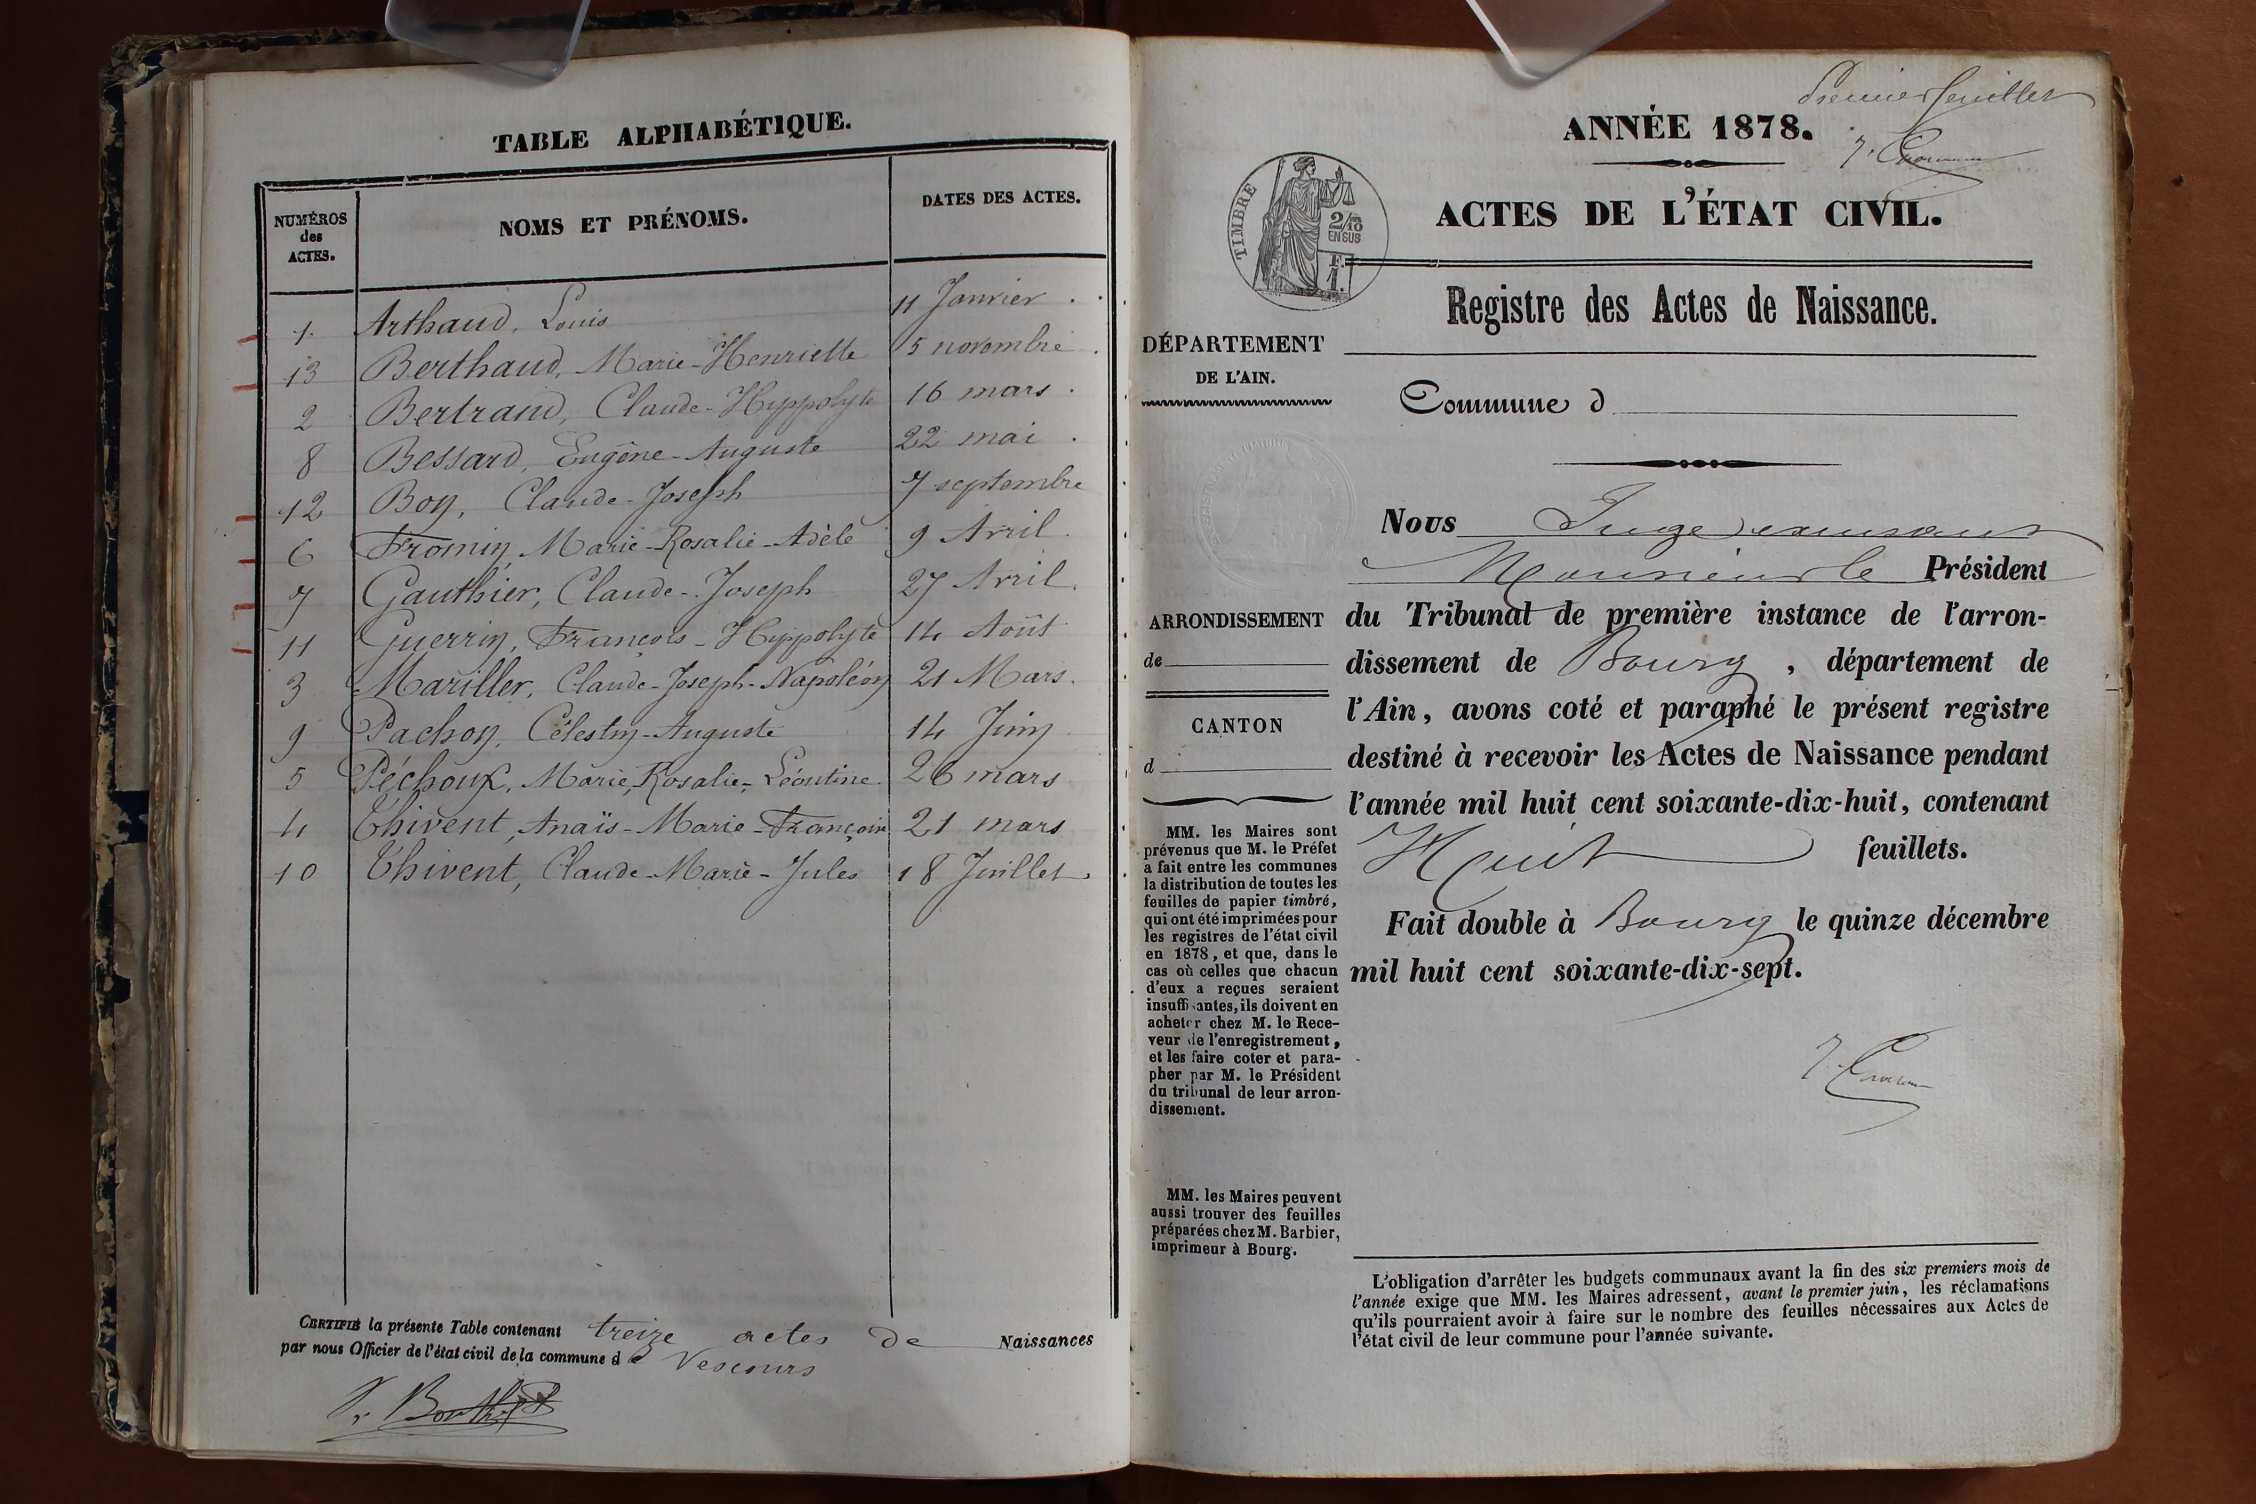 TABLE ALPHABÉTIQUE.
NUMÉROS
des
ACTES.
NOMS ET PRÉNOMS.
DATES DES ACTES.
1. Arthaud, Louis 11 Janvier.
13 Berthaud, Marie-Henriette 5 novembre.
2 Bertrand, Claude-Hyppolyte 16 mars.
8 Bessard, Eugène-Auguste 22 mai.
12 Boy, Claude-Joseph 7 septembre
6 Fromin, Marie-Rosalie-Adèle 9 Avril.
7 Gauthier, Claude-Joseph 27 Avril.
11 Guerrin, François-Hyppolyte 14 Août
3 Mariller, Claude-Joseph-Napoléon 21 Mars.
9 Pachon, Célestin-Auguste 14 Juin
5 Péchoux, Marie, Rosalie-Léontine 26 mars
4 Thivent, Anaïs-Marie-Françoise 21 mars
10 Thivent, Claude-Marie-Jules 18 Juillet.
CERTIFIÉ la présente Table contenant treize actes de Naissances
par nous Officier de l'état civil de la commune de Vescours
Premier feuillet
ANNÉE 1878.
ACTES DE L'ÉTAT CIVIL.
TIMBRE
2/10
EN SUS
F.
1.
Registre des Actes de Naissance.
DÉPARTEMENT
DE L'AIN.
Commune d
Nous Juge
Monsieur le Président
ARRONDISSEMENT
de
CANTON
d
du Tribunal de première instance de l'arron-
dissement de Bourg, département de
l'Ain, avons coté et paraphé le présent registre
destiné à recevoir les Actes de Naissance pendant
l'année mil huit cent soixante-dix-huit, contenant
Huit feuillets.
Fait double à Bourg le quinze décembre
mil huit cent soixante-dix-sept.
MM. les Maires sont
prévenus que M. le Préfet
a fait entre les communes
la distribution de toutes les
feuilles de papier timbré,
qui ont été imprimées pour
les registres de l'état civil
en 1878, et que, dans le
cas où celles que chacun
d'eux a reçues seraient
insuffisantes, ils doivent en
acheter chez M. le Rece-
veur de l'enregistrement,
et les faire coter et para-
pher par M. le Président
du tribunal de leur arron-
dissement.
MM. les Maires peuvent
aussi trouver des feuilles
préparées chez M. Barbier,
imprimeur à Bourg.
L'obligation d'arrêter les budgets communaux avant la fin des six premiers mois de
l'année exige que MM. les Maires adressent, avant le premier juin, les réclamations
qu'ils pourraient avoir à faire sur le nombre des feuilles nécessaires aux Actes de
l'état civil de leur commune pour l'année suivante.